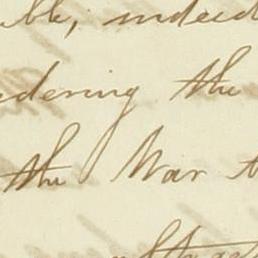 ble, indeed
dering the
the War t